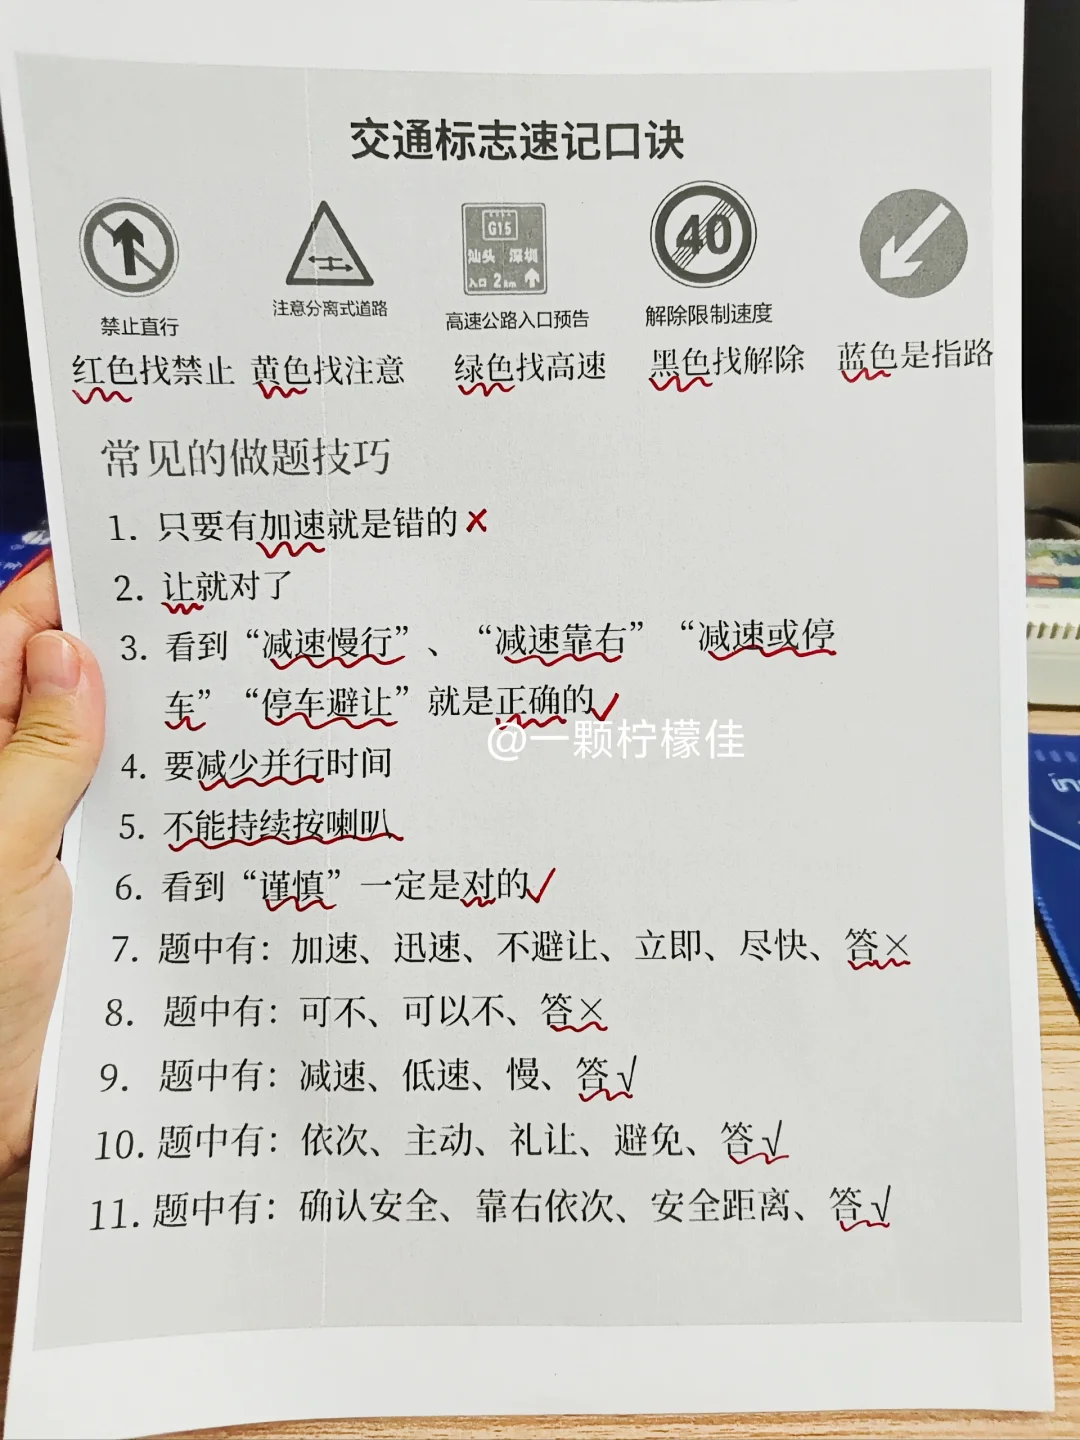 交通标志速记口诀
G15
汕头 深圳
入口 2km
40
禁止直行
注意分离式道路
高速公路入口预告
解除限制速度
红色找禁止 黄色找注意 绿色找高速 黑色找解除 蓝色是指路
常见的做题技巧
1. 只要有加速就是错的×
2. 让就对了
3. 看到“减速慢行”、“减速靠右”“减速或停
车”“停车避让”就是正确的✓
@一颗柠檬佳
4. 要减少并行时间
5. 不能持续按喇叭
6. 看到“谨慎”一定是对的✓
7. 题中有：加速、迅速、不避让、立即、尽快、答×
8. 题中有：可不、可以不、答×
9. 题中有：减速、低速、慢、答√
10. 题中有：依次、主动、礼让、避免、答√
11. 题中有：确认安全、靠右依次、安全距离、答√